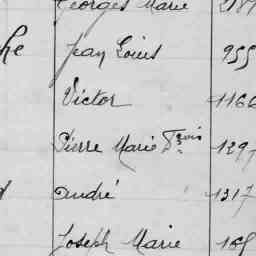 Georges Marie 218
he Jean Louis 955
Victor 1166
Pierre Marie Fçois 129
André 1317
Joseph Marie